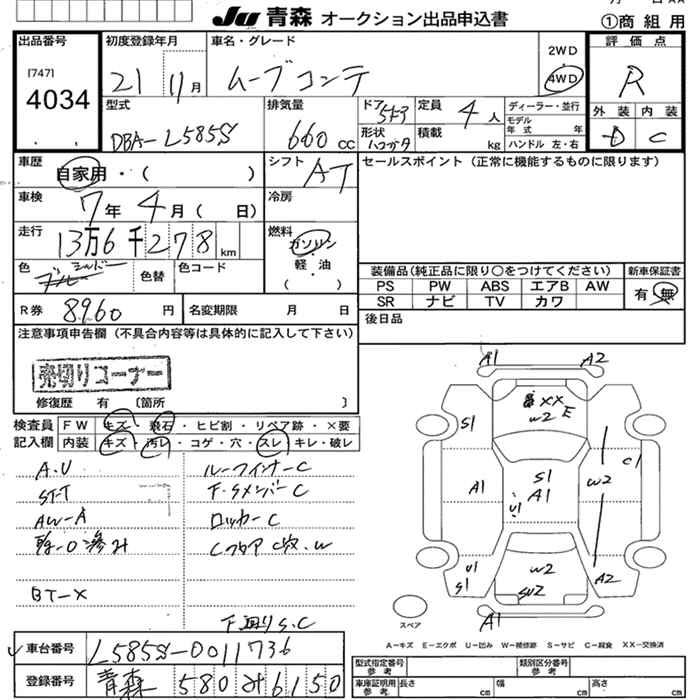 Ju 青森 オークション出品申込書
①商 組 用
出品番号
[747]
4034
初度登録年月
21 11月
車名・グレード
ムーブコンテ
2WD
4WD
評価点
R
外装 内装
D C
型式
DBA-L585S
排気量
660 CC
ドア 5ドア
形状 ハコガタ
定員 4 人
積載 kg
ディーラー・並行
モデル年式 年
ハンドル 左・右
車歴
自家用・( )
シフト AT
セールスポイント(正常に機能するものに限ります)
車検
7年 4月( 日)
冷房
走行
13万6千278km
燃料
ガソリン
軽・油
( )
色
シルバー
色替
色コード
R券 8960 円
名変期限 月 日
装備品(純正品に限り○をつけてください)
新車保証書
PS PW ABS エアB AW
SR ナビ TV カワ
有 無
後日品
注意事項申告欄(不具合内容等は具体的に記入して下さい)
売切りコーナー
修復歴 有 〔箇所 〕
検査員記入欄
FW キズ・飛石・ヒビ割・リペア跡・×要
内装 キズ・汚レ・コゲ・穴・スレ・キレ・破レ
A.U
ルーフインナーC
ST-T
F・SメンバーC
AW-A
ロッカーC
BT-X
下廻りS.C
A1 A2
XX
W2 E
S1
C1
A1
S1
A1
U1
W2
U1
S1
W2
SU2
A2
A1
スペア
A-キズ E-エクボ U-凹み W-補修跡 S-サビ C-腐食 XX-交換済
車台番号
L585S-0011736
登録番号
青森 580 み 6150
型式指定番号 参考
類別区分番号 参考
車庫証明用 参考
長さ cm
幅 cm
高さ cm